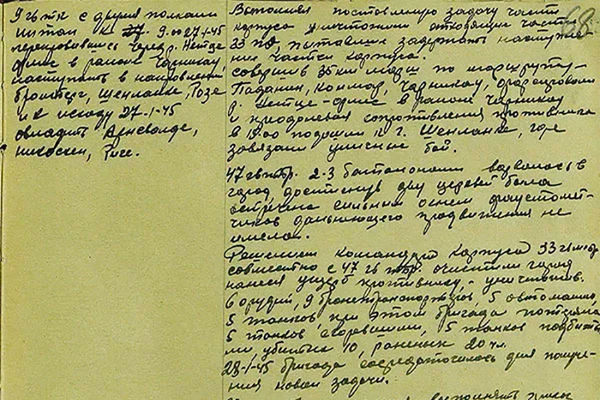 9 гв тк с двумя полками
к 9.00 27-1-45
переправившись через Нетце
в районе Чарникау
наступать в направлении
Бромберг, Шенланке,
и к исходу 27-1-45
овладеть Арневольде,
68
Выполняя поставленную задачу части
корпуса уничтожали отходящие части
33 пд пытавшихся задержать наступле-
ние частей корпуса.
Совершив 35 км марш по маршруту
Чарникау, форсировали
р. Нетце в районе Чарникау
и преодолевая сопротивление противника
в 19.00 подошли к г. Шенланке, где
завязали уличные бои.
47 гв тбр. 2-3 батальонами ворвалась в
город, достигнув двух церквей была
встречена сильным огнем фаустпат-
дальнейшего продвижения не
имела.
Решением командира корпуса 33 гв мбр
совместно с 47 гв тбр. очистили город
нанеся ущерб противнику, - уничтожив.
6 орудий, 9 бронетранспортеров, 5 автомашин,
5 танков, при этом бригада потеряла
5 танков сгоревшими, 5 танков подбиты-
ми, убитых 10, раненых 20 чл.
28-1-45 бригада сосредоточилась для получе-
ния новой задачи.